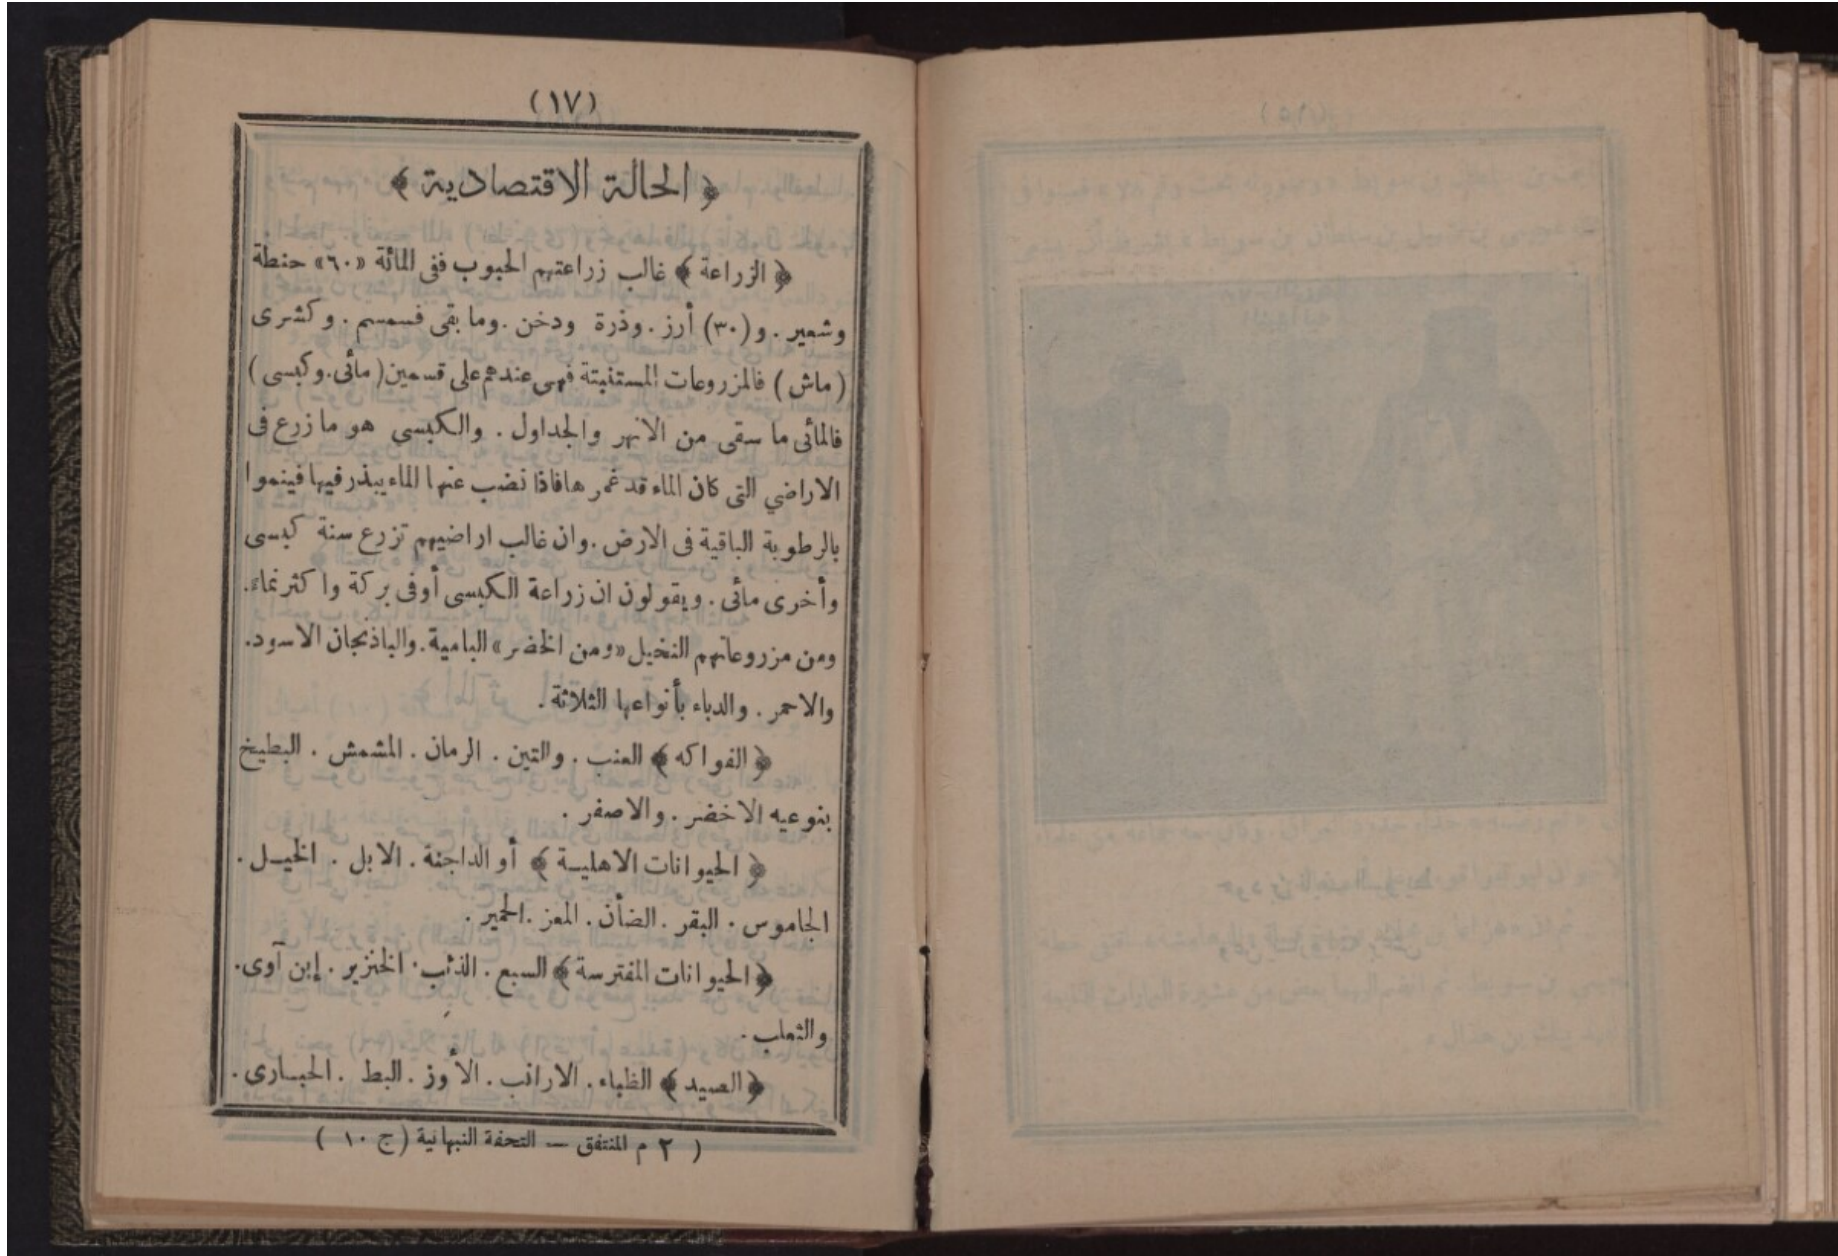 (١٧)
﴿ الحالة الاقتصادية ﴾
﴿ الزراعة ﴾ غالب زراعتهم الحبوب ففى المائة «٦٠» حنطة
وشعير . و (٣٠) أرز . وذرة ودخن . وما بقى فسمسم . وكشرى
(ماش) فالمزروعات المستنبتة فهى عندهم على قسمين (مائى . وكبسى)
فالمائى ما سقى من الانهر والجداول . والكبسى هو ما زرع فى
الاراضي التى كان الماء قد غمر هافاذا نضب عنها الماء يبذر فيها فينموا
بالرطوبة الباقية فى الارض . وان غالب اراضيهم تزرع سنة كبسى
وأخرى مائى . ويقولون ان زراعة الكبسى أوفى بركة واكثر نماء.
ومن مزروعاتهم النخيل «ومن الخضر» البامية . والباذنجان الاسود.
والاحمر . والدباء بأنواعها الثلاثة .
﴿ الفواكه ﴾ العنب . والتين . الرمان . المشمش . البطيخ
بنوعيه الاخضر . والاصفر .
﴿ الحيوانات الاهلية ﴾ أو الداجنة . الابل . الخيل .
الجاموس . البقر . الضأن . المعز . الحمير .
﴿ الحيوانات المفترسة ﴾ السبع . الذئب . الخنزير . إبن آوى.
والثعلب .
﴿ الصيد ﴾ الظباء . الارانب . الأوز . البط . الحبارى .
( ٢ م المنتفق — التحفة النبهانية (ج ١٠ )